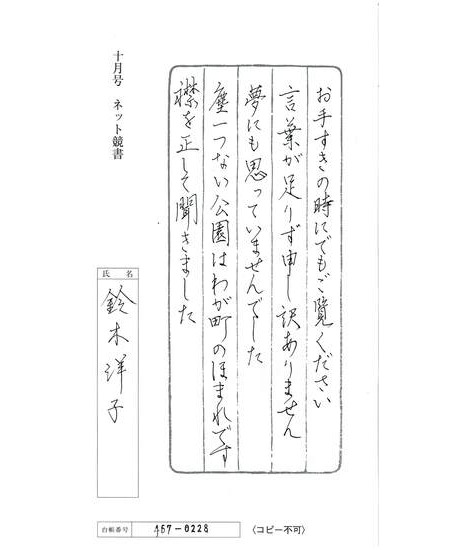 お手すきの時にでもご覧ください
言葉が足りず申し訳ありません
夢にも思っていませんでした
塵一つない公園はわが町のほまれです
襟を正して聞きました
十月号 ネット競書
氏名
鈴木洋子
台帳番号 467-0228
〈コピー不可〉